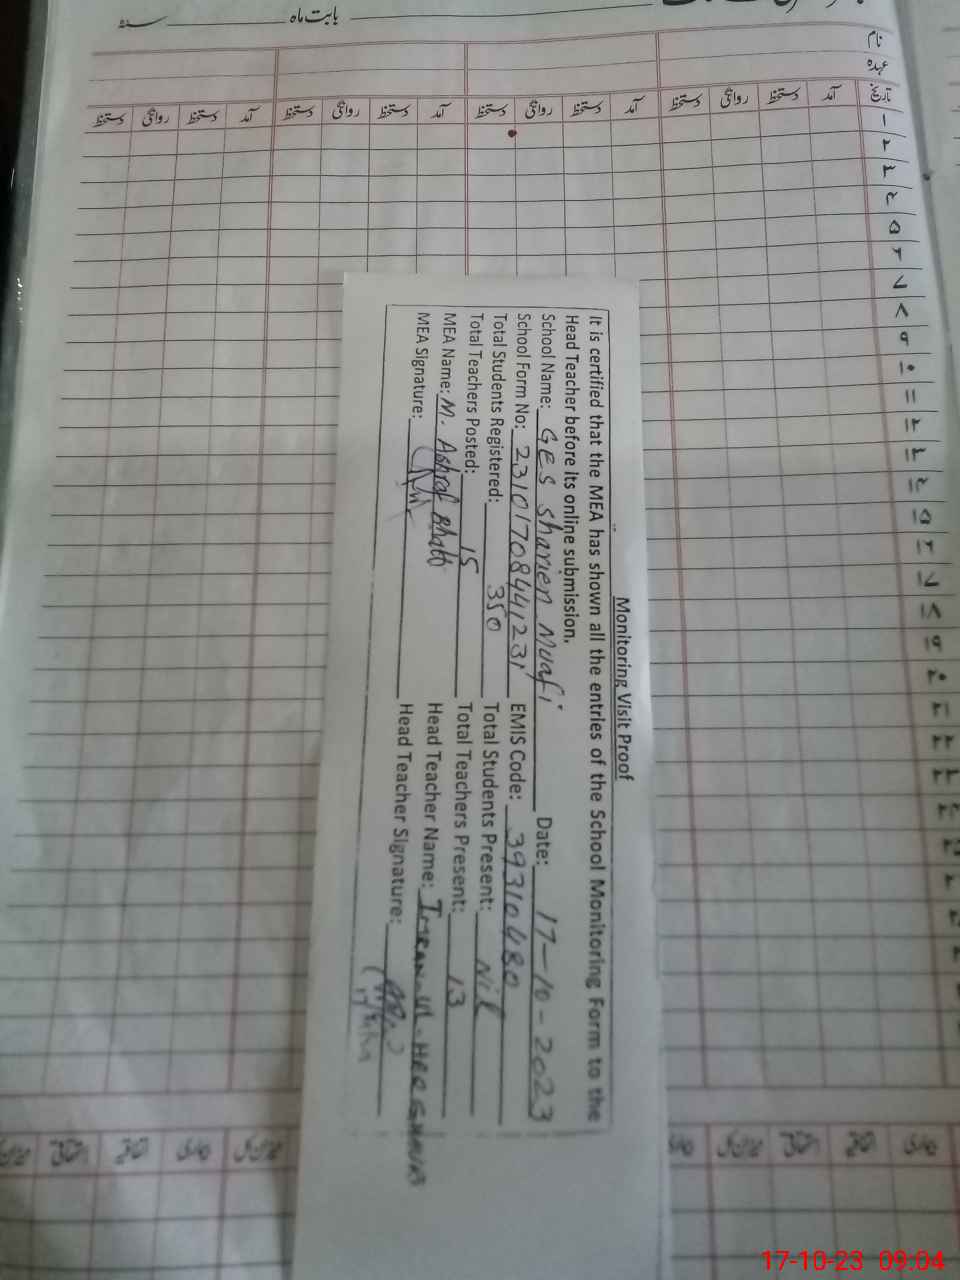 بابت ماہ سنہ
نام
عہدہ
تاریخ آمد دستخط روانگی دستخط آمد دستخط روانگی دستخط آمد دستخط روانگی دستخط آمد دستخط روانگی دستخط
۱
۲
۳
۴
۵
۶
۷
۸
۹
۱۰
۱۱
۱۲
۱۳
۱۴
۱۵
۱۶
۱۷
۱۸
۱۹
۲۰
۲۱
۲۲
۲۳
Monitoring Visit Proof
It is certified that the MEA has shown all the entries of the School Monitoring Form to the
Head Teacher before its online submission.
School Name: GES Sharien Muafi Date: 17-10-2023
School Form No: 23101708441231 EMIS Code: 39310480
Total Students Registered: 350 Total Students Present: Nil
Total Teachers Posted: 15 Total Teachers Present: 13
MEA Name: M. Ashraf Bhatti Head Teacher Name: IMRAN-UL-HAQ
MEA Signature: Head Teacher Signature:
17-10-23 09:04